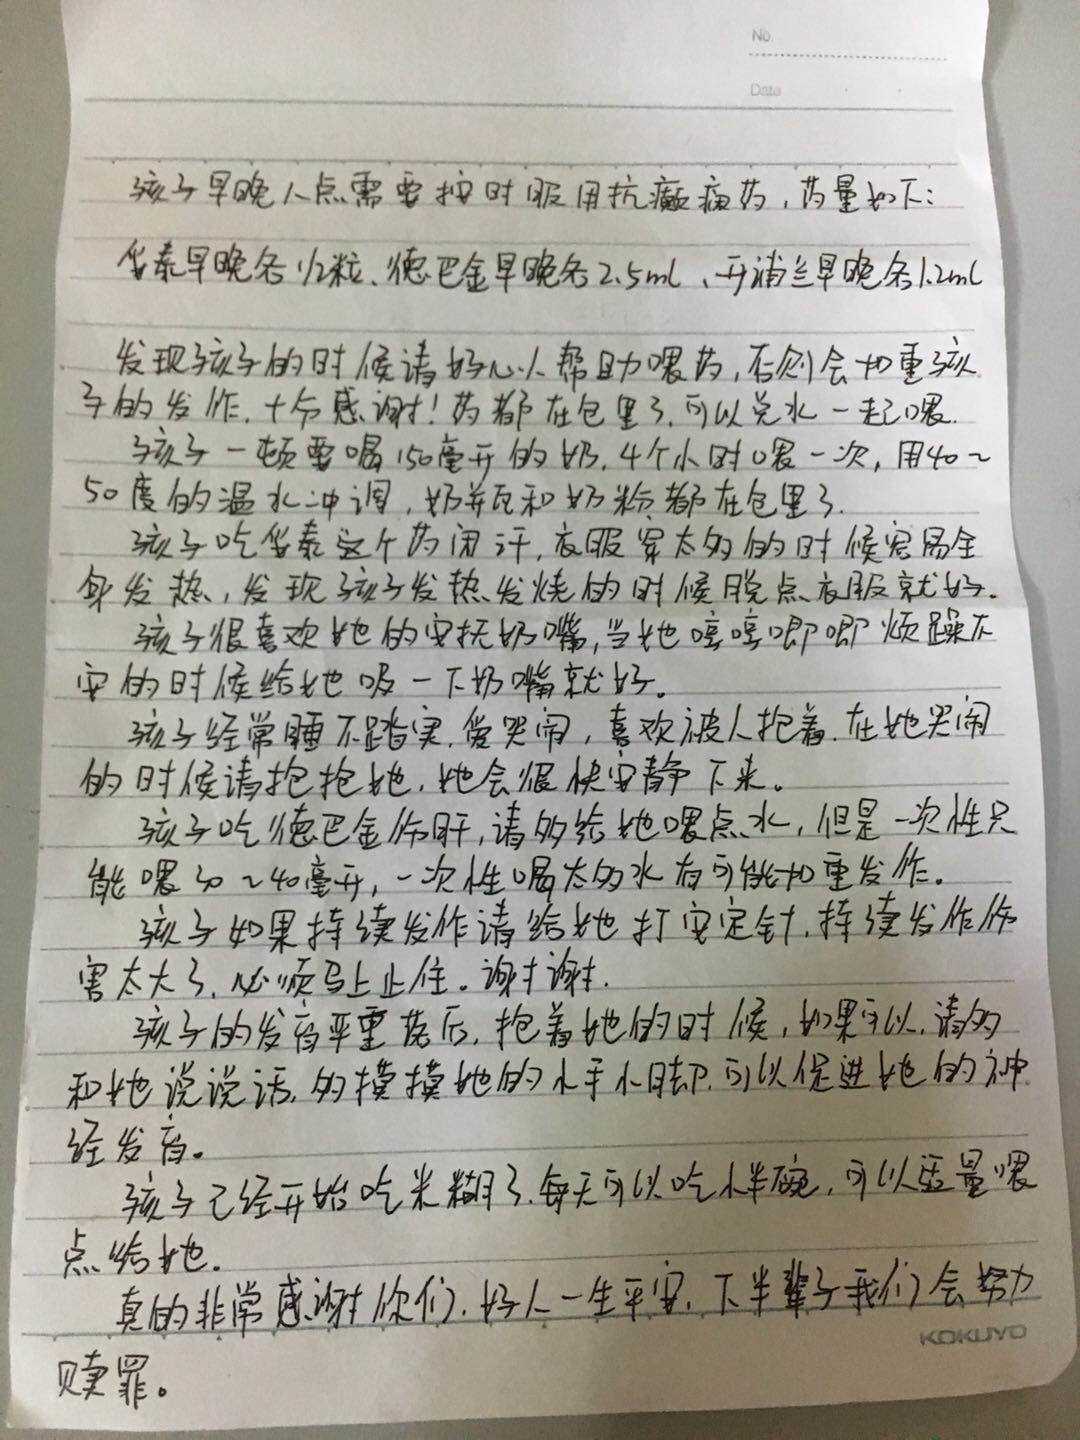 No.
Date
孩子早晚八点需要按时服用抗癫痫药，药量如下：
华素早晚各1/2粒、德巴金早晚各2.5ml、开浦兰早晚各1.2ml
发现孩子的时候请好心人帮助喂药，否则会加重孩
子的发作，十分感谢！药都在包里了，可以兑水一起喂.
孩子一顿要喝150毫升的奶，4个小时喂一次，用40~
50度的温水冲调，奶瓶和奶粉都在包里了.
孩子吃华素这个药闭汗，衣服穿太多的时候容易全
身发热，发现孩子发热发烧的时候脱点衣服就好.
孩子很喜欢她的安抚奶嘴，当她哼哼唧唧烦躁不
安的时候给她吸一下奶嘴就好。
孩子经常睡不踏实，爱哭闹，喜欢被人抱着，在她哭闹
的时候请抱抱她，她会很快安静下来。
孩子吃德巴金伤肝，请多给她喂点水，但是一次性只
能喂30~40毫升，一次性喝太多水有可能加重发作。
孩子如果持续发作请给她打安定针，持续发作伤
害太大了，必须马上止住。谢谢.
孩子的发育严重落后，抱着她的时候，如果可以，请多
和她说说话，多摸摸她的小手小脚，可以促进她的神
经发育。
孩子已经开始吃米糊了，每天可以吃小半碗，可以适量喂
点给她.
真的非常感谢你们，好人一生平安，下半辈子我们会努力
KOKUYO
赎罪。